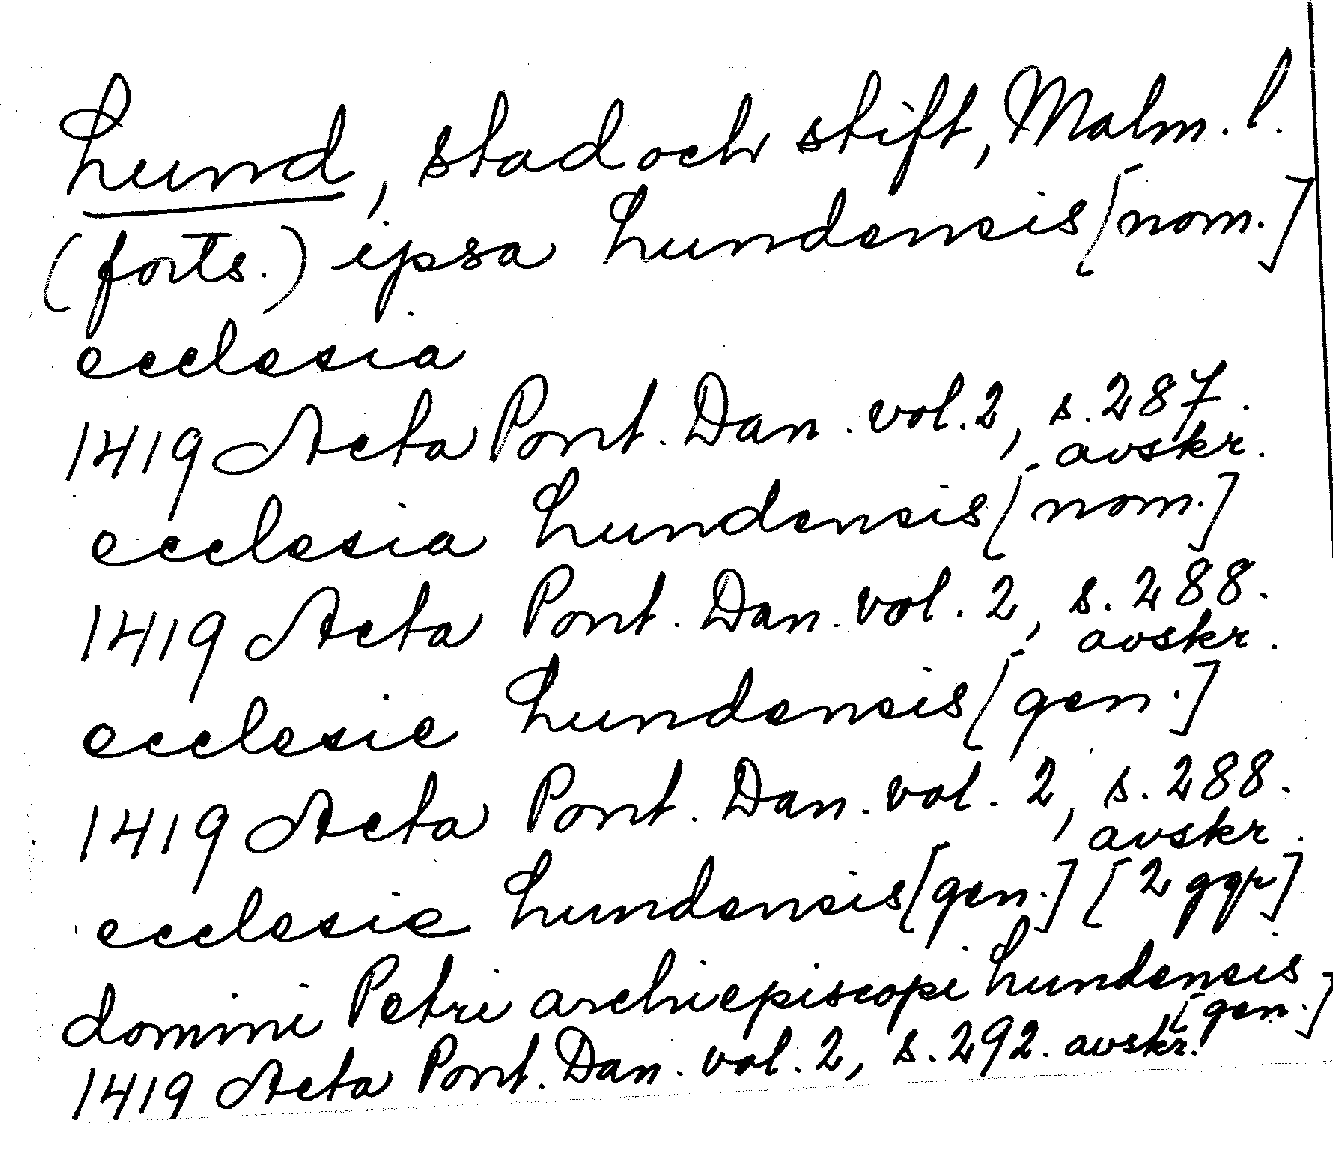 Lund, stad och stift, Malm. l.
(forts.) ipsa Lundensis [nom.]
ecclesia
1419 Acta Pont. Dan. vol. 2, s. 287.
avskr.
ecclesia Lundensis [nom.]
1419 Acta Pont. Dan. vol. 2, s. 288.
avskr.
ecclesie Lundensis [gen.]
1419 Acta Pont. Dan. vol. 2, s. 288.
avskr.
ecclesie Lundensis [gen.] [2 ggr]
domini Petri archiepiscopi Lundensis
[gen.]
1419 Acta Pont. Dan. vol. 2, s. 292. avskr.